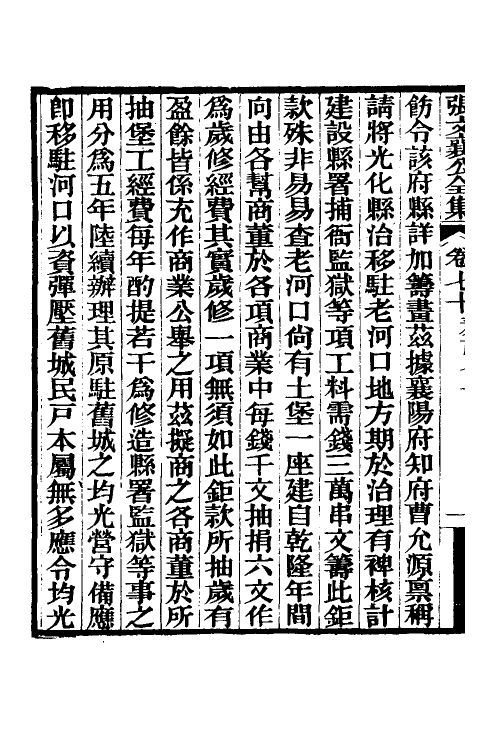 張文襄公全集
卷七十
飭令該府縣詳加籌畫茲據襄陽府知府曹允源稟稱
請將光化縣治移駐老河口地方期於治理有裨核計
建設縣署捕衙監獄等項工料需錢三萬串文籌此鉅
款殊非易易查老河口尙有土堡一座建自乾隆年間
向由各幫商董於各項商業中每錢千文抽捐六文作
爲歲修經費其實歲修一項無須如此鉅款所抽歲有
盈餘皆係充作商業公舉之用茲擬商之各商董於所
抽堡工經費每年酌提若干爲修造縣署監獄等事之
用分爲五年陸續辦理其原駐舊城之均光營守備應
卽移駐河口以資彈壓舊城民戸本屬無多應令均光